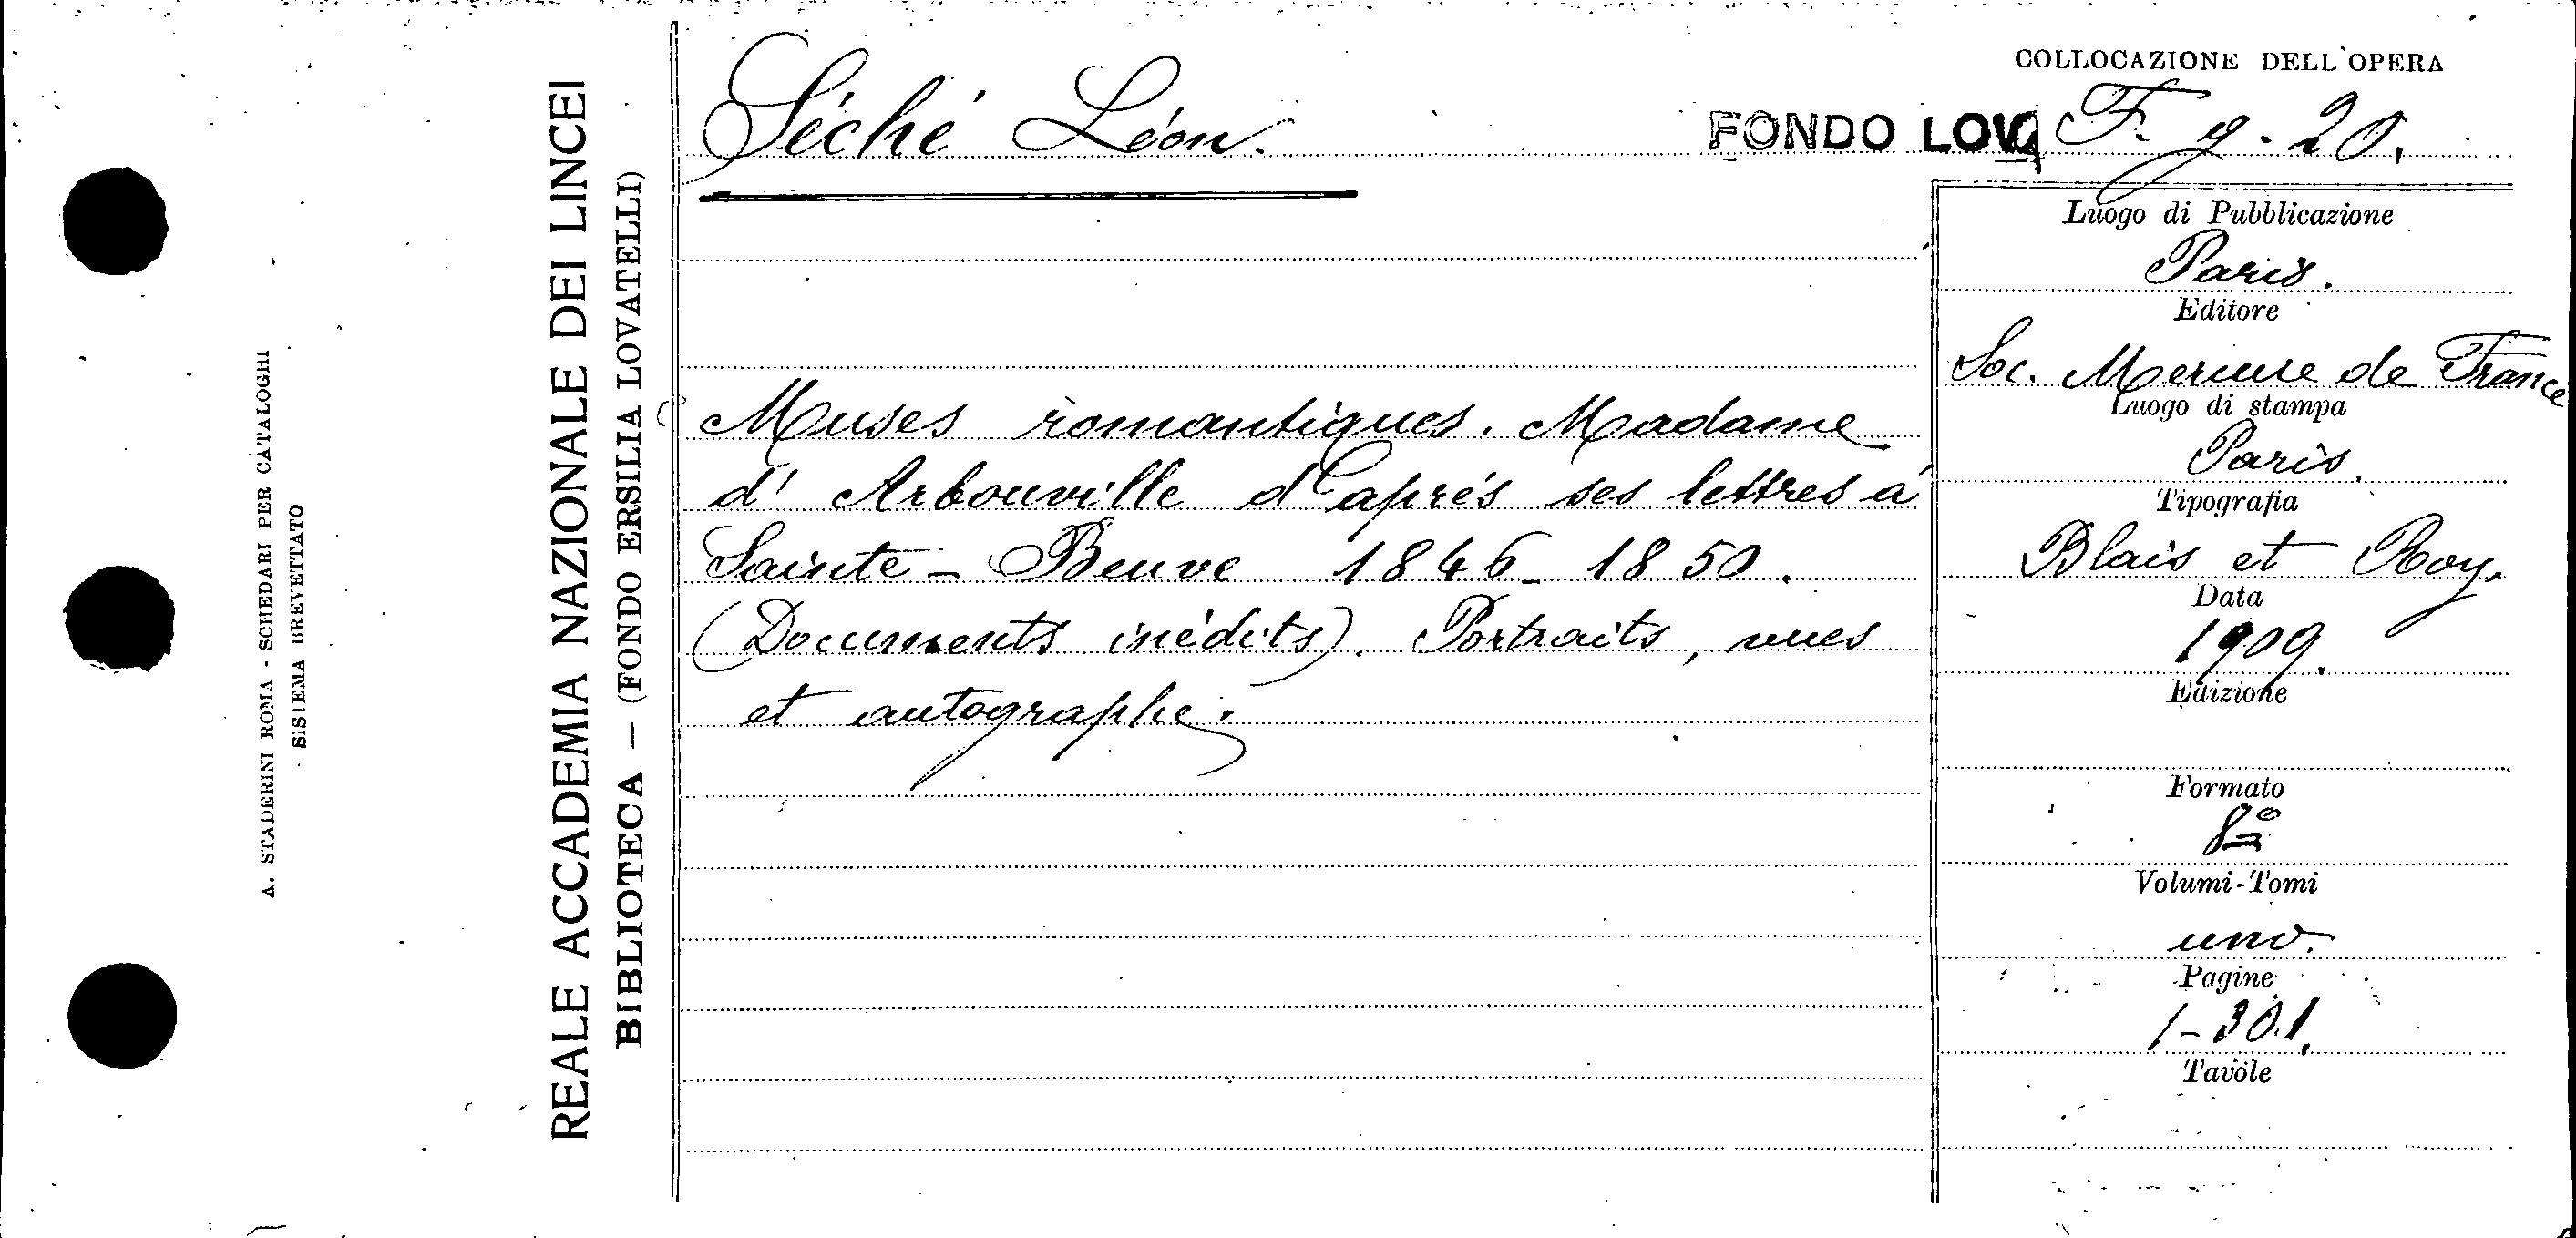 A. STADERINI ROMA - SCHEDARI PER CATALOGHI
SISTEMA BREVETTATO
REALE ACCADEMIA NAZIONALE DEI LINCEI
BIBLIOTECA — (FONDO ERSILIA LOVATELLI)
Séché Léon.
Muses romantiques. Madame
d' Arbouville d'aprés ses lettres á
Sainte - Beuve 1846 - 1850.
(Documents inédits). Portraits, vues
et autographe.
COLLOCAZIONE DELL'OPERA
FONDO LOVA F. g. 20.
Luogo di Pubblicazione
Paris.
Editore
Soc. Mercure de France
Luogo di stampa
Paris.
Tipografia
Blais et Roy.
Data
1909.
Edizione
Formato
8º
Volumi-Tomi
uno.
Pagine
1-301.
Tavole